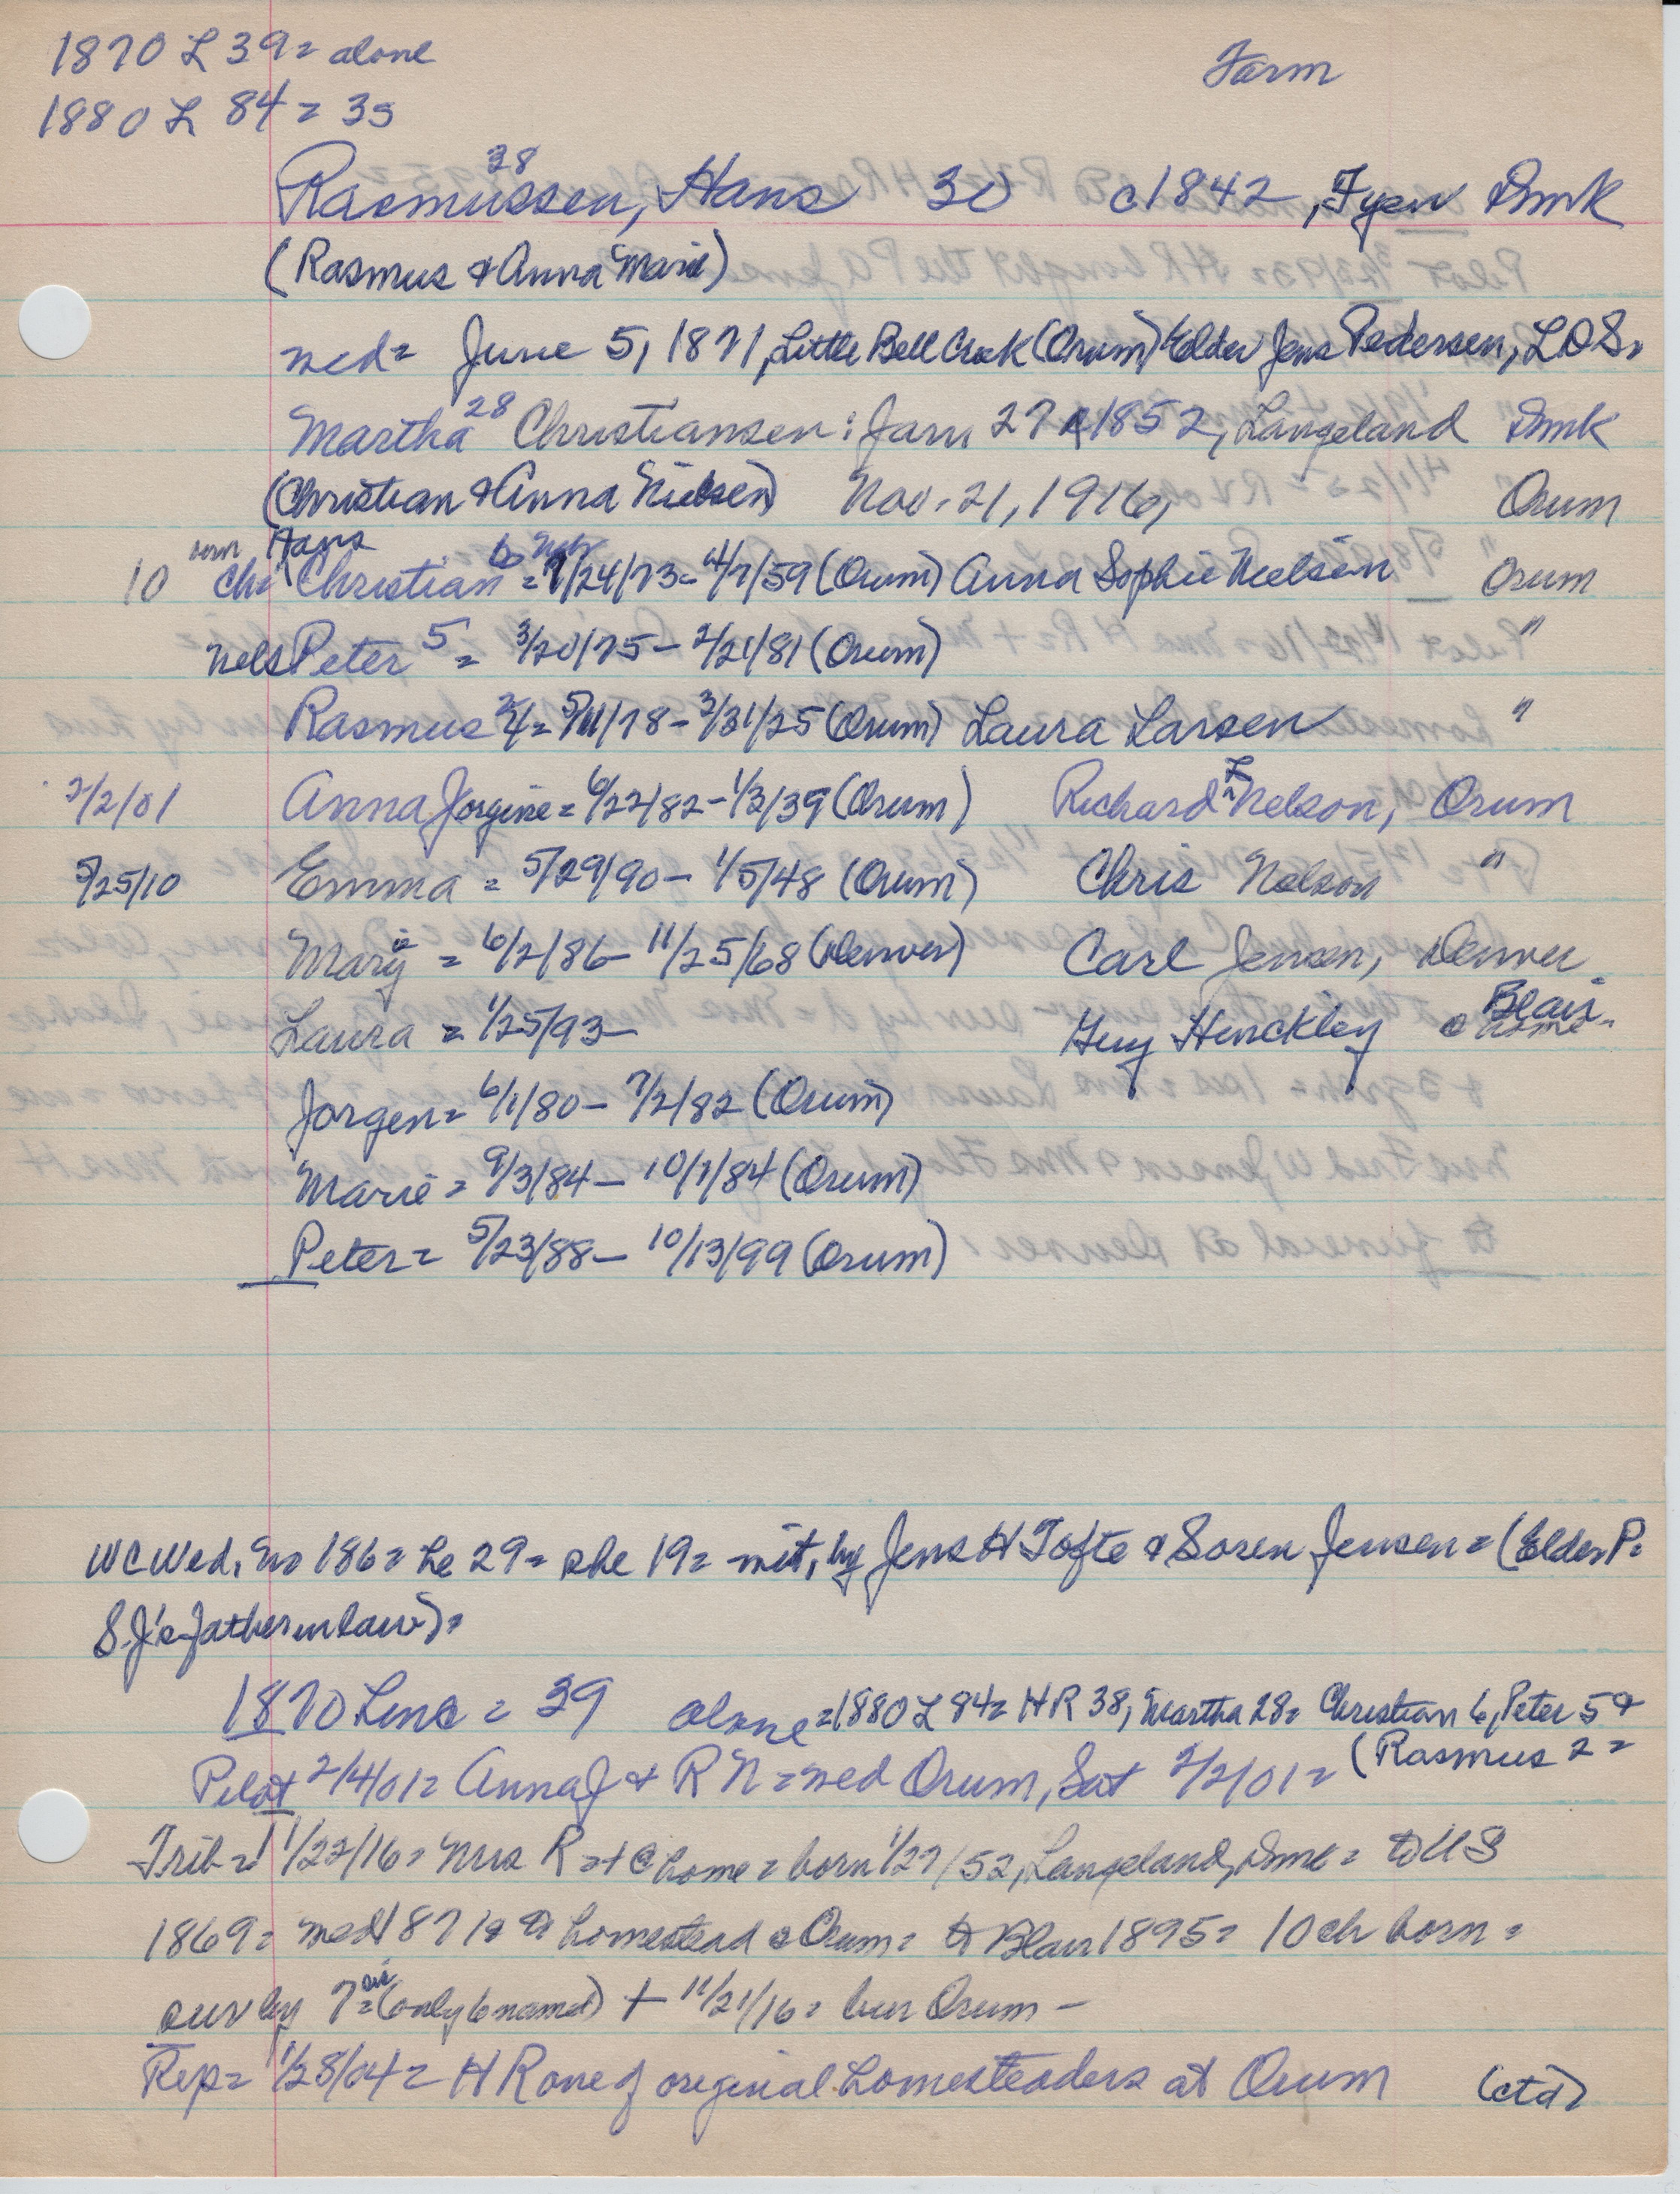 1870 L 39 = alone
Farm
1880 L 84 = 35
38
Rasmussen, Hans 30 c1842, Fyen Dmk
(Rasmus & Anna Marie)
wed = June 5, 1871, Little Bell Creek (Orum) Elder Jens Pedersen, LDS.
Martha 28 Christiansen: Jan 27 1852, Langeland Dmk
(Christian & Anna Nielsen) Nov. 21, 1916, Orum
born Hans
10 ch = Christian 6 = /24/73 - 4/7/59 (Orum) Anna Sophie Nielsen Orum
Nels Peter 5 = 3/20/75 - 2/21/81 (Orum) "
Rasmus 2 = 5/11/78 - 3/31/25 (Orum) Laura Larsen "
2/2/01 Anna Jorgine = 6/22/82 - 1/3/39 (Orum) Richard Nelson, Orum
5/25/10 Emma = 5/29/90 - 1/5/48 (Orum) Chris Nelson "
Mary = 6/2/86 - 11/25/68 (Denver) Carl Jensen, Denver
Laura = 1/25/93 - Guy Hinckley Blair
@ home -
Jorgen = 6/1/80 - 7/2/82 (Orum)
Marie = 9/3/84 - 10/7/84 (Orum)
Peter = 5/23/88 - 10/13/99 (Orum)
WC Wed. No 186 = he 29 = she 19 = wit, by Jens H Tofte & Soren Jensen = (Elder P =
S. J's father in law) =
1870 Linc = 39 alone = 1880 L 84 = H R 38, Martha 28 = Christian 6, Peter 5 &
(Rasmus 2 =
Pilot 2/4/01 = Anna J & R N = wed Orum, Sat 2/2/01 =
Trib = 11/22/16 = Mrs R = + @ home = born 1/27/52, Langeland, Dmk = to US
1869 = wed 1871 = homestead @ Orum = to Blair 1895 = 10 ch born =
surv by 7 = (only 6 named) + 11/21/16 = bur Orum -
Rep = 1/28/04 = H R one of original homesteaders at Orum (ctd)